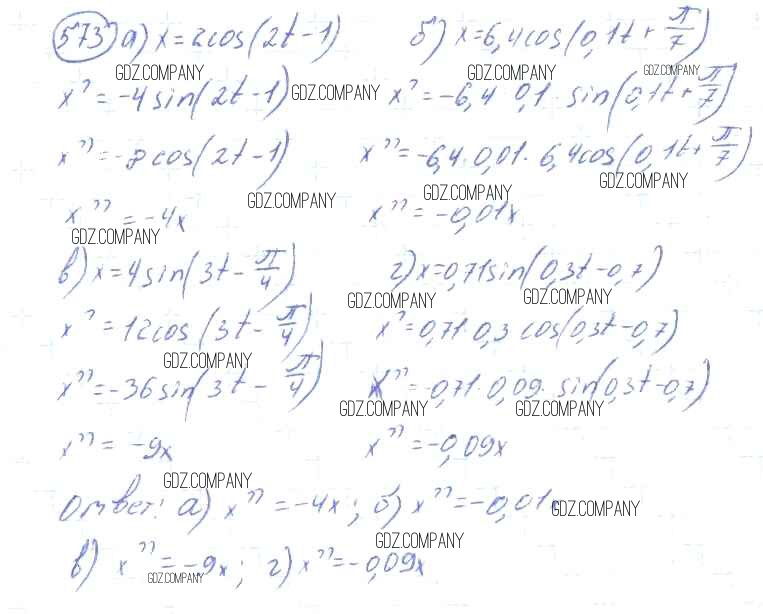 573 а) x=2cos(2t-1) б) x=6,4cos(0,1t+π/7)
GDZ.COMPANY GDZ.COMPANY GDZ.COMPANY
x' = -4sin(2t-1) GDZ.COMPANY x' = -6,4·0,1·sin(0,1t+π/7)
x'' = -8cos(2t-1) x'' = -6,4·0,01·6,4cos(0,1t+π/7)
GDZ.COMPANY GDZ.COMPANY GDZ.COMPANY
x'' = -4x x'' = -0,01x
GDZ.COMPANY
в) x=4sin(3t-π/4) г) x=0,71sin(0,3t-0,7)
GDZ.COMPANY GDZ.COMPANY
x' = 12cos(3t-π/4) x' = 0,71·0,3 cos(0,3t-0,7)
GDZ.COMPANY
x'' = -36sin(3t-π/4) x'' = -0,71·0,09·sin(0,3t-0,7)
GDZ.COMPANY GDZ.COMPANY
x'' = -9x x'' = -0,09x
GDZ.COMPANY
Ответ: а) x'' = -4x; б) x'' = -0,01 GDZ.COMPANY
GDZ.COMPANY
в) x'' = -9x; г) x'' = -0,09x
GDZ.COMPANY